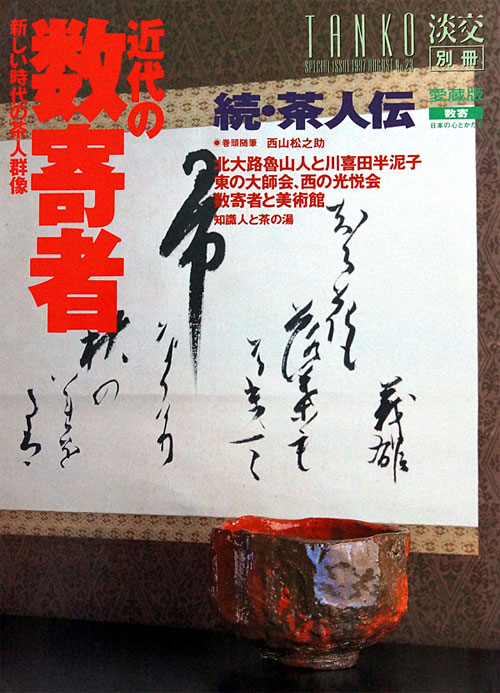 TANKO 淡交
SPECIAL ISSUE 1997 AUGUST No.23
別冊
愛蔵版
数寄
日本の心とかたち
近代の
数寄者
新しい時代の茶人群像
続・茶人伝
●巻頭随筆 西山松之助
北大路魯山人と川喜田半泥子
東の大師会、西の光悦会
数寄者と美術館
知識人と茶の湯
義雄